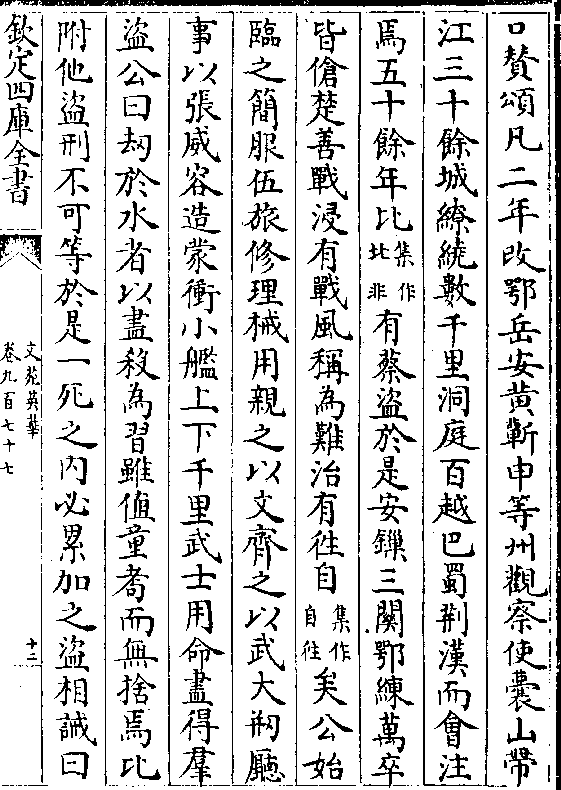 口賛頌凡二年改鄂岳安黄蘄申等州觀察使囊山帶
江三十餘城繚繞數千里洞庭百越巴蜀荆漢而會注
焉五十餘年比集作北非有蔡盜於是安鏁三關鄂練萬卒
皆傖楚善戰浸有戰風稱為難治有徃自集作自徃矣公始
臨之簡服伍旅修理械用親之以文齊之以武大刱廳
事以張威容造蒙衝小艦上下千里武士用命盡得羣
盜公曰刼於水者以盡殺為習雖值童耇而無捨焉比
附他盜刑不可等於是一死之内必累加之盜相誡曰
欽定四庫全書
文苑英華
卷九百七十七
十三